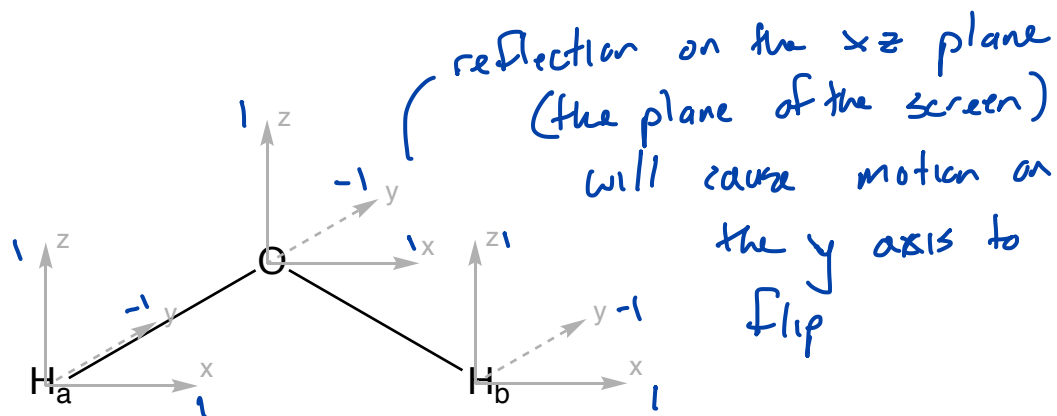 reflection on the xz plane
(the plane of the screen)
will cause motion on
the y axis to
flip
1 z
-1 y
1 z
O
1 x
z 1
-1 y
y -1
Ha
x
1
Hb
x
1